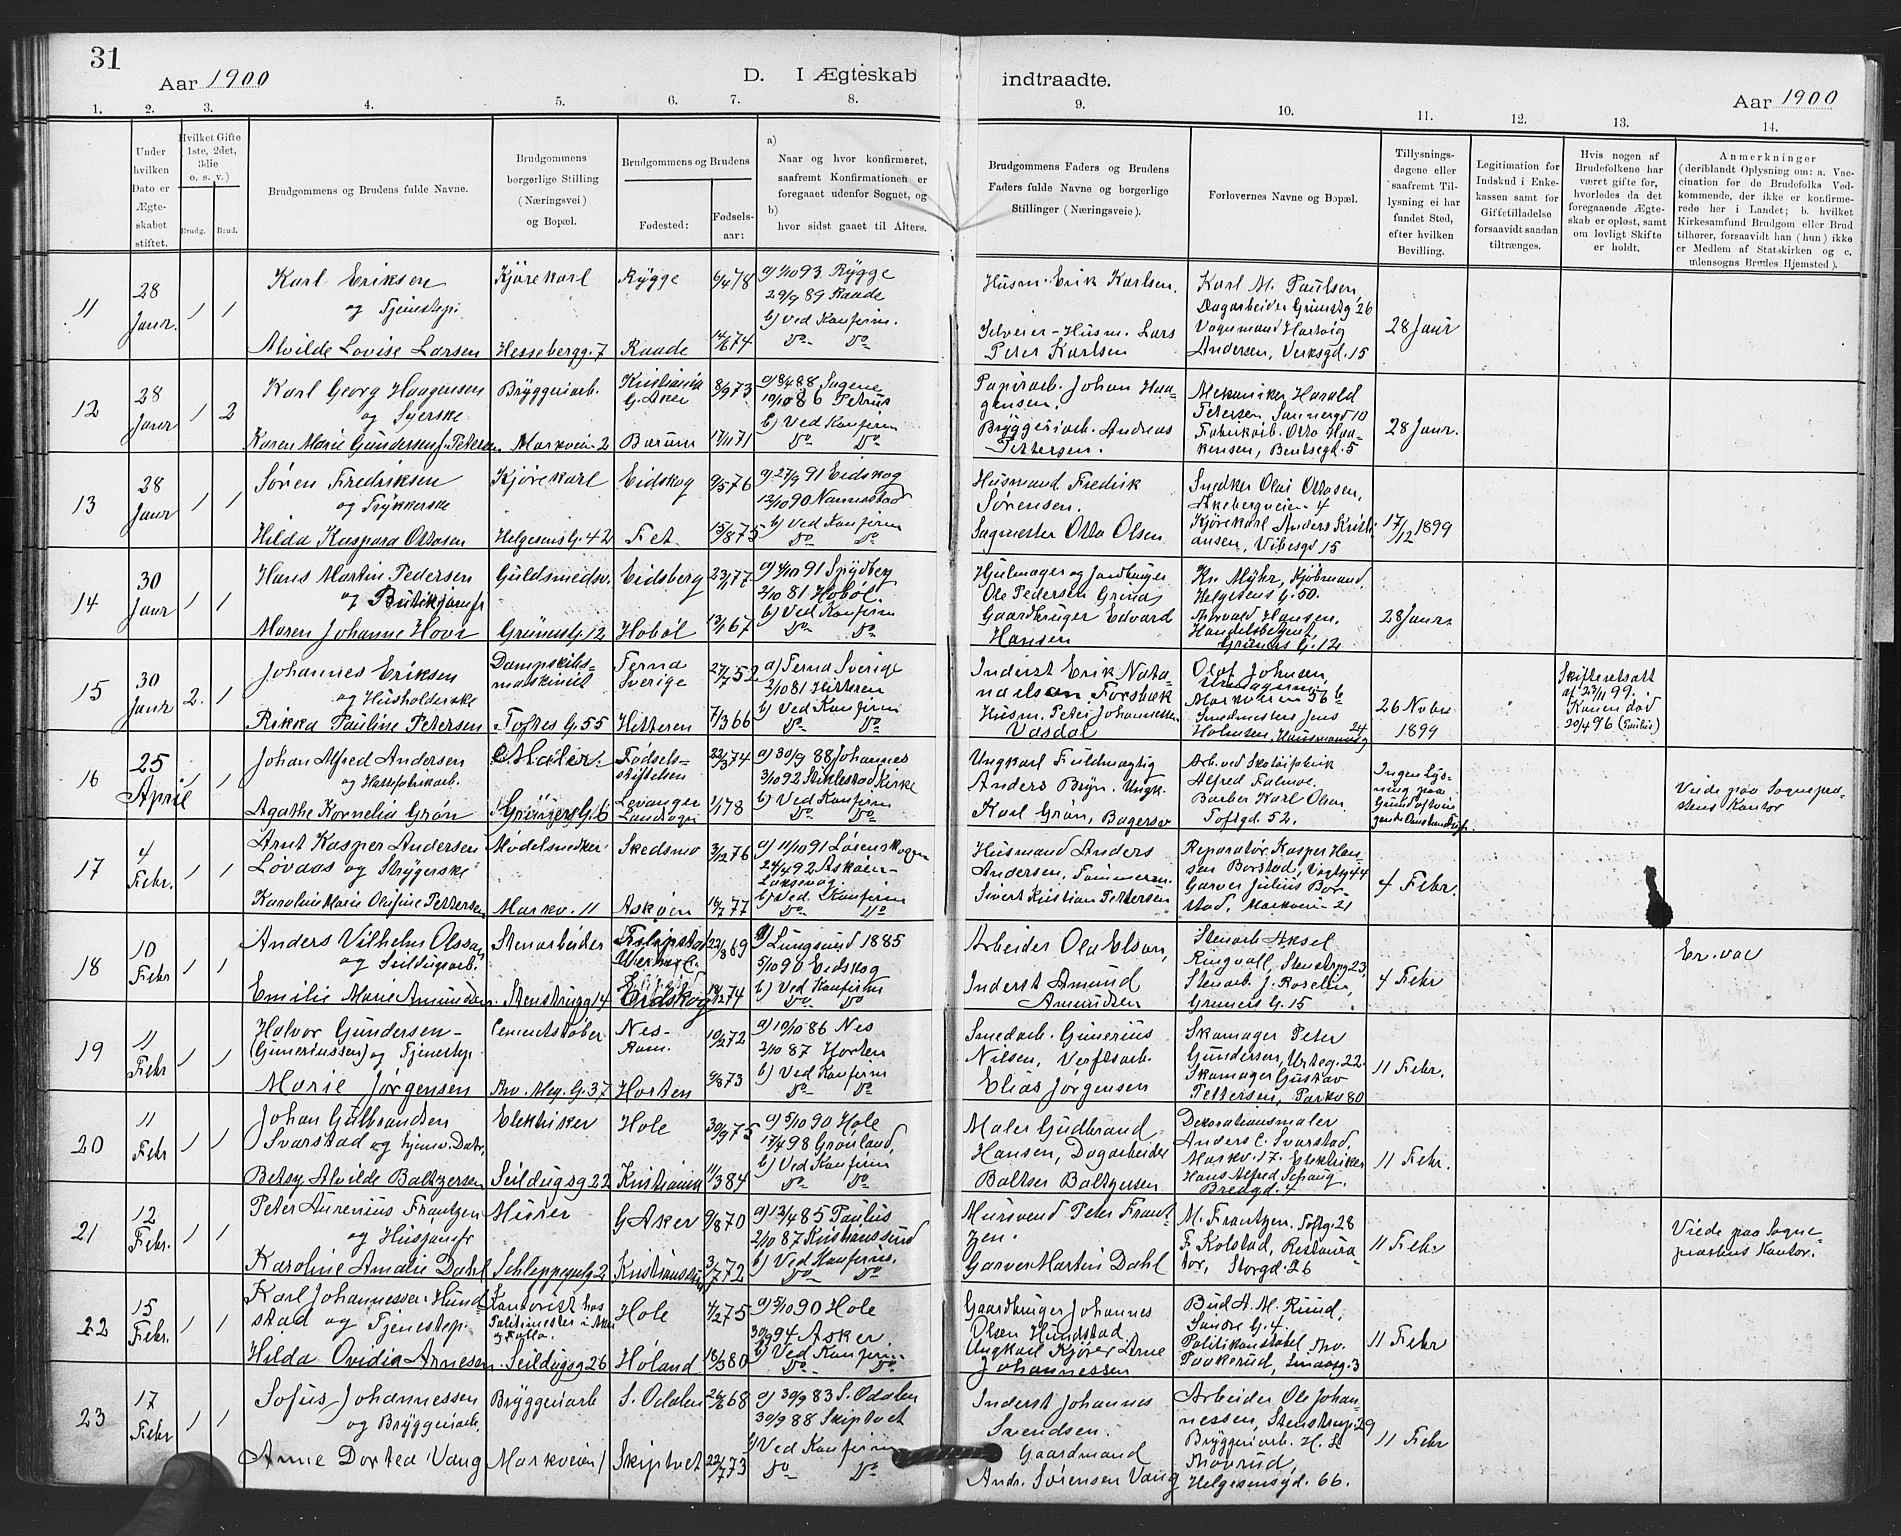 31
Aar 1900
D. I Ægteskab
indtraadte.
Aar 1900
1. 2. 3. 4. 5. 6. 7. 8. 9. 10. 11. 12. 13. 14.
Under hvilken Dato er Ægteskabet stiftet.
Hvilket Gifte 1ste, 2det, 3die o. s. v.)
Brudg. Brud.
Brudgommens og Brudens fulde Navne.
Brudgommens borgerlige Stilling (Næringsvei) og Bopæl.
Brudgommens og Brudens
Fødested:
Fødselsaar:
a) Naar og hvor konfirmeret, saafremt Konfirmationen er foregaaet udenfor Sognet, og
b) hvor sidst gaaet til Alters.
Brudgommens Faders og Brudens Faders fulde Navne og borgerlige Stillinger (Næringsveie).
Forlovernes Navne og Bopæl.
Tillysningsdagene eller saafremt Tillysning ei har fundet Sted, efter hvilken Bevilling.
Legitimation for Indskud i Enkekassen samt for Giftetilladelse forsaavidt saadan tiltrænges.
Hvis nogen af Brudefolkene har været gifte før, hvorledes da det foregaaende Ægteskab er opløst, samt om lovligt Skifte er holdt.
Anmerkninger (deriblandt Oplysning om: a. Vaccination for de Brudefolks Vedkommende, der ikke er konfirmerede her i Landet; b. hvilket Kirkesamfund Brudgom eller Brud tilhører, forsaavidt han (hun) ikke er Medlem af Statskirken og c. udensogns Brudes Hjemsted).
11 28 Janr. 1 1 Karl Eriksen og Tjenestep. Kjørekarl Rygge 6/4 78 a) 1/10 93 Rygge Husm. Erik Karlsen. Karl M. Paulsen,
29/9 89 Raade Dagarbeider Grünstg 26
b) Ved Konfirm. Vognmand Hartvig 28 Janr
Alvilde Lovise Larsen Hessebergg. 7 Raade 14/6 74 do do Selveier-Husm. Lars Peter Karlsen Andersen, Verksgd. 15
12 28 Janr 1 2 Karl Georg Haagensen og Syerske Bryggeriarb. Kristiania G. Aker 8/9 73 a) 8/4 88 Sagene Papirarb. Johan Haagensen. Mekaniker Harald
10/10 86 Petrus Petersen, Sannergd 10
b) Ved Konfirm Fabrikarb. Otto Haakensen, Bentsegd. 5 28 Janr.
Karen Marie Gundersen f. Petersen Markvein 2 Bærum 17/11 71 do do Bryggeriarb. Andreas Pettersen.
13 28 Janr 1 1 Søren Fredriksen og Trykkerske Kjørekarl Eidskog 9/5 76 a) 27/9 91 Eidskog Husmand Fredrik Sørensen. Snedker Olai Ottosen, Akebergveien 4
12/10 90 Nannestad
b) Ved Konfirm Kjørekarl Anders Kristiansen, Vibesgd 15 17/12 1899
Hilda Kaspara Ottosen Helgesensg. 42 Fet. 15/8 75 do do Sagmester Otto Olsen
14 30 Janr 1 1 Hans Martin Pedersen og Butikjomfr Guldsmedsv. Eidsberg 23/1 77 a) 4/10 91 Spydbeg Hjulmager og Jordbruger Ole Pedersen Kr. Myhr, Kjøbmand, Helgesens G. 50.
2/10 81 Hobøl.
b) Ved Konfirm Thorvald Hansen, Handelsbetjent, Grünersg. 12 28 Janr.
Maren Johanne Hovr Grünersg. 12 Hobøl 13/1 67 do do Gaardbruger Edvard Hansen
15 30 Janr 2. 1 Johannes Eriksen og Husholderske Dampskibsmaskinist Ferna Sverige 27/7 52 a) Ferna Sverige Inderst Erik Natanaelsen Forsbak Olof Johnsen, Urmager Markveien 56 b
2/10 81 Hitteren
b) Ved Konfirm Smedmester Jens Holmsen, Hausmannsg 24 26 Novbr 1899 Skifteretsatt af 23/11 99. Konen død 20/4 96 (Paulus)
Rikka Pauline Petersen Toftes G. 55 Hitteren 7/3 66 do do Husm. Peter Johannessen Vasdal
16 25 April 1 1 Johan Alfred Andersen og Hattefabrikarb. Maler. Fødselsstiftelsen 22/3 74 a) 30/9 88 Johannes Ungkarl Fuldmægtig Anders Bryn. Arb. ved Skotøifabrik Alfred Falmoe.
3/10 92 Stiklestad Kirke
b) Ved Konfirm Barber Karl Olsen Toftgd 52. Ingen Lysning paa Grund af tvingende Omstændigh. Viede paa Sognepræstens Kontor
Agathe Kornelia Grøn Grünersg. 6 Levanger Landsogn 1/1 78 do do Ungk. Karl Grøn, Bagersv
17 4 Febr. 1 1 Arnt Kasper Andersen Løvaas og Strygerske Modelsnedker Skedsmo 3/12 76 a) 11/10 91 Lørenskogen Husmand Anders Andersen, Tømmerm. Reparatør Kasper Hansen Borstad, Vogtsg 44
24/4 92 Askøen-Laksevåg
b) Ved Konfirm Garver Julius Borstad, Markvein 21 4 Febr.
Karoline Marie Olufine Pettersen Markv. 11 Askøen 16/7 77 do do Sivert Kristian Pettersen
18 10 Febr 1 1 Anders Vilhelm Olsson og Seildugsarb. Stenarbeider Filipstad Verml. 22/8 69 a) Lungsund 1885 Arbeider Ola Elson, Stenarb Aksel Ringvall, Stenstrpg 23,
5/10 90 Eidskog
b) Ved Konfirm Stenarb. J. Roselin, Gruners G. 15 4 Febr Er. vac
Emilie Marie Amundsen. Stenstrugg 14 Eidskog 18/12 74 do do Inderst Amund Amundsen
19 11 Febr 1 1 Halvor Gundersen (Gunerinssen) og Tjenestep Cementstøber Nes Rom. 10/2 72 a) 10/10 86 Nes Smedarb. Gunerius Nilsen, Skomager Peter Gundersen, Urteg. 22.
2/10 87 Horten
b) Ved Konfirm Skomager Gustav Pettersen, Parkv 80 11 Febr.
Marie Jørgensen Thv. Meg. G. 37 Horten 5/8 73 do do Verftsarb. Elias Jørgensen
20 11 Febr 1 1 Johan Gulbrandsen Svarstad og hjemv. Datr, Elektriker Hole 30/9 75 a) 5/10 90 Hole Maler Gudbrand Hansen, Dekorationsmaler Anders C. Svarstad,
17/4 98 Grønland,
b) Ved Konfirm Markv. 17. Elektriker Hans Alfred Schaug, Bredgd. 4 11 Febr.
Betsy Alvilde Baltzersen Seildugsg 22 Kristiania 11/3 84 do do Dagarbeider Baltser Baltzersen
21 12 Febr. 1 1 Peter Aurenius Frantzen og Husjomfr Murer G Aker 9/8 70 a) 12/4 85 Paulus Mursvend Peter Frantzen. M. Frantzen. Toftg. 28
2/10 87 Kristianssund
b) Ved Konfirm. F. Kolstad, Restauratør, Storgd. 26 11 Febr Viede paa Sognepræstens Kontor.
Karoline Amalie Dahl Schleppegrg. 2 Kristianssund 3/7 72 do do Garver Martin Dahl
22 15 Febr. 1 1 Karl Johannessen Hundstad og Tjenestep. Kontorist hos Politimester i Aker og Follo. Hole 4/2 75 a) 5/10 90 Hole Gaardbruger Johannes Olsen Hundstad. Bud A. M. Rund, Søndre G. 4.
30/9 94 Asker
b) Ved Konfirm. Politikonstabel Thv. Taakerud, Smaasg. 3 11 Febr
Hilda Ovidia Arnesen. Seildugsg 26 Høland 18/3 80 do do Ungkarl Kjører Arne Johannessen
23 17 Febr 1 1 Sofus Johannessen og Bryggeriarb. Bryggeriarb S. Odalen 26/6 68 a) 30/9 83 S. Odalen Inderst Johannes Svendsen. Arbeider Ole Johannessen, Stenstrup. 29
30/9 88 Skiptvet
b) Ved Konfirm Bryggeriarb. H. L. Thovrud, Helgesensgd. 66. 11 Febr
Anne Dortea Vang Markveien 1 Skiptvet 22/7 73 do do Gaardmand Andr. Sørensen Vang